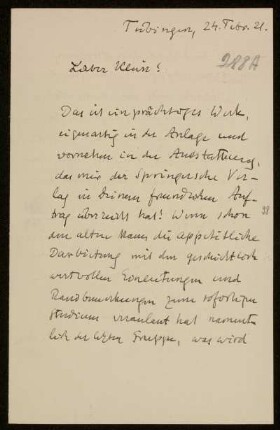 Tübingen, 24. Febr. 21.
288A
Lieber Klein!
Das ist ein prächtiges Werk,
eigenartig in der Anlage und
vornehm in der Ausstattung,
das mir der Springersche Ver-
lag in Deinem freundlichen Auf-
trag übersandt hat! Wenn schon
den alten Mann die appetitliche
Darbietung mit den geschichtlich
wertvollen Einleitungen und
Randbemerkungen zum sofortigen
Studium veranlasst hat, nament-
lich der letzten Gruppe, was wird